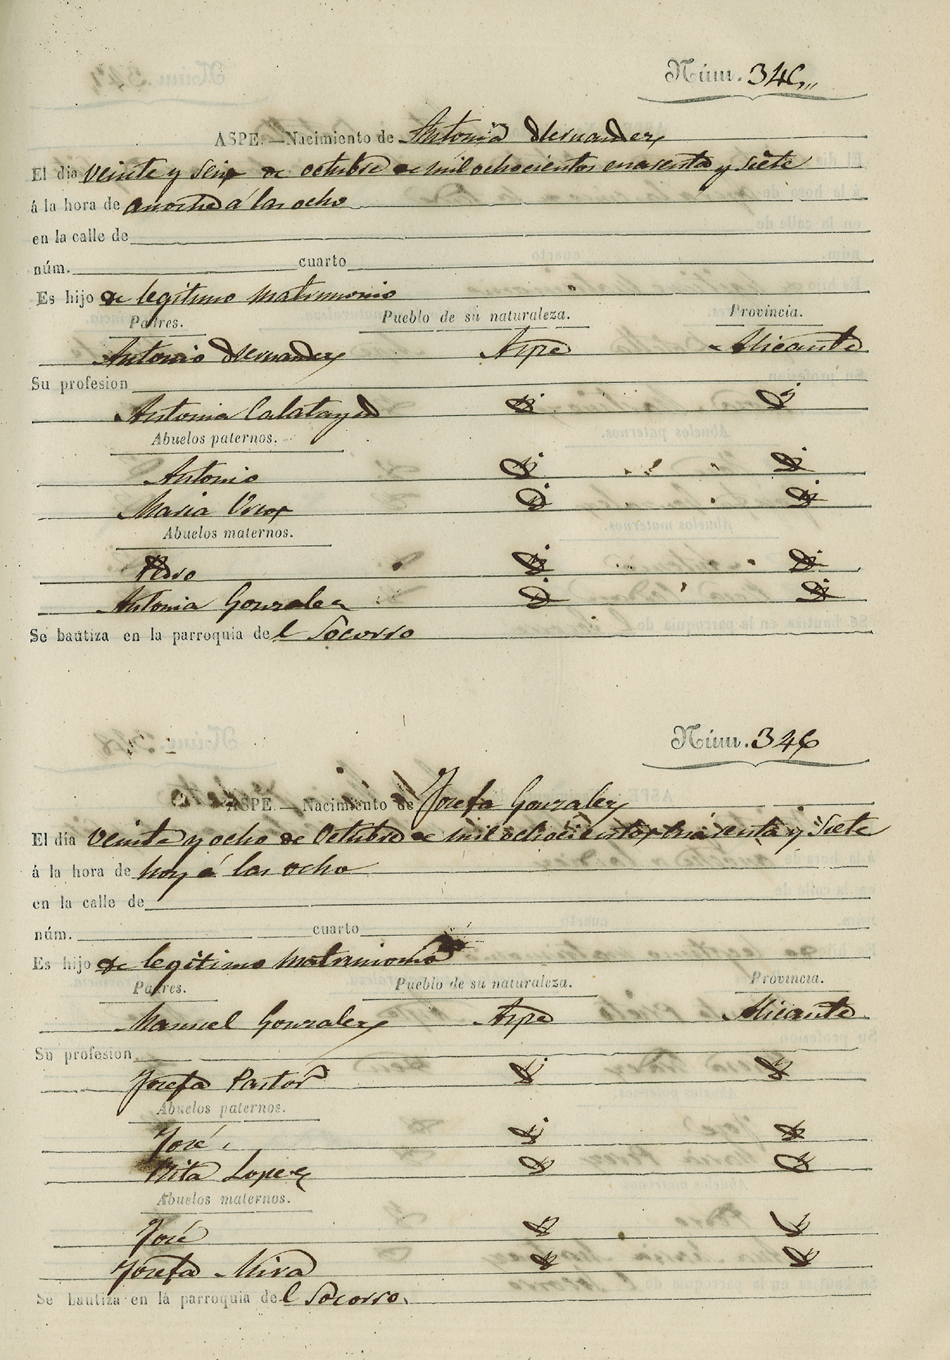 Núm. 346
ASPE.—Nacimiento de Antonia Hernandez
El dia veinte y seis de octubre de mil ochocientos cuarenta y siete
á la hora de anoche á las ocho
en la calle de
núm. cuarto
Es hijo de legitimo matrimonio
Padres. Pueblo de su naturaleza. Provincia.
Antonio Hernandez Aspe Alicante
Su profesion
Antonia Calatayud Id Id
Abuelos paternos.
Antonio Id Id
Maria Id Id
Abuelos maternos.
Pedro Id Id
Antonia Gonzalez Id Id
Se bautiza en la parroquia del Socorro
Núm. 346
ASPE.—Nacimiento de Josefa Gonzalez
El dia veinte y ocho de Octubre de mil ochocientos cuarenta y siete
á la hora de hoy á las ocho
en la calle de
núm. cuarto
Es hijo de legitimo matrimonio
Padres. Pueblo de su naturaleza. Provincia.
Manuel Gonzalez Aspe Alicante
Su profesion
Josefa Pastor Id Id
Abuelos paternos.
José Id Id
Rita Lopez Id Id
Abuelos maternos.
José Id Id
Josefa Mira Id Id
Se bautiza en la parroquia del Socorro.